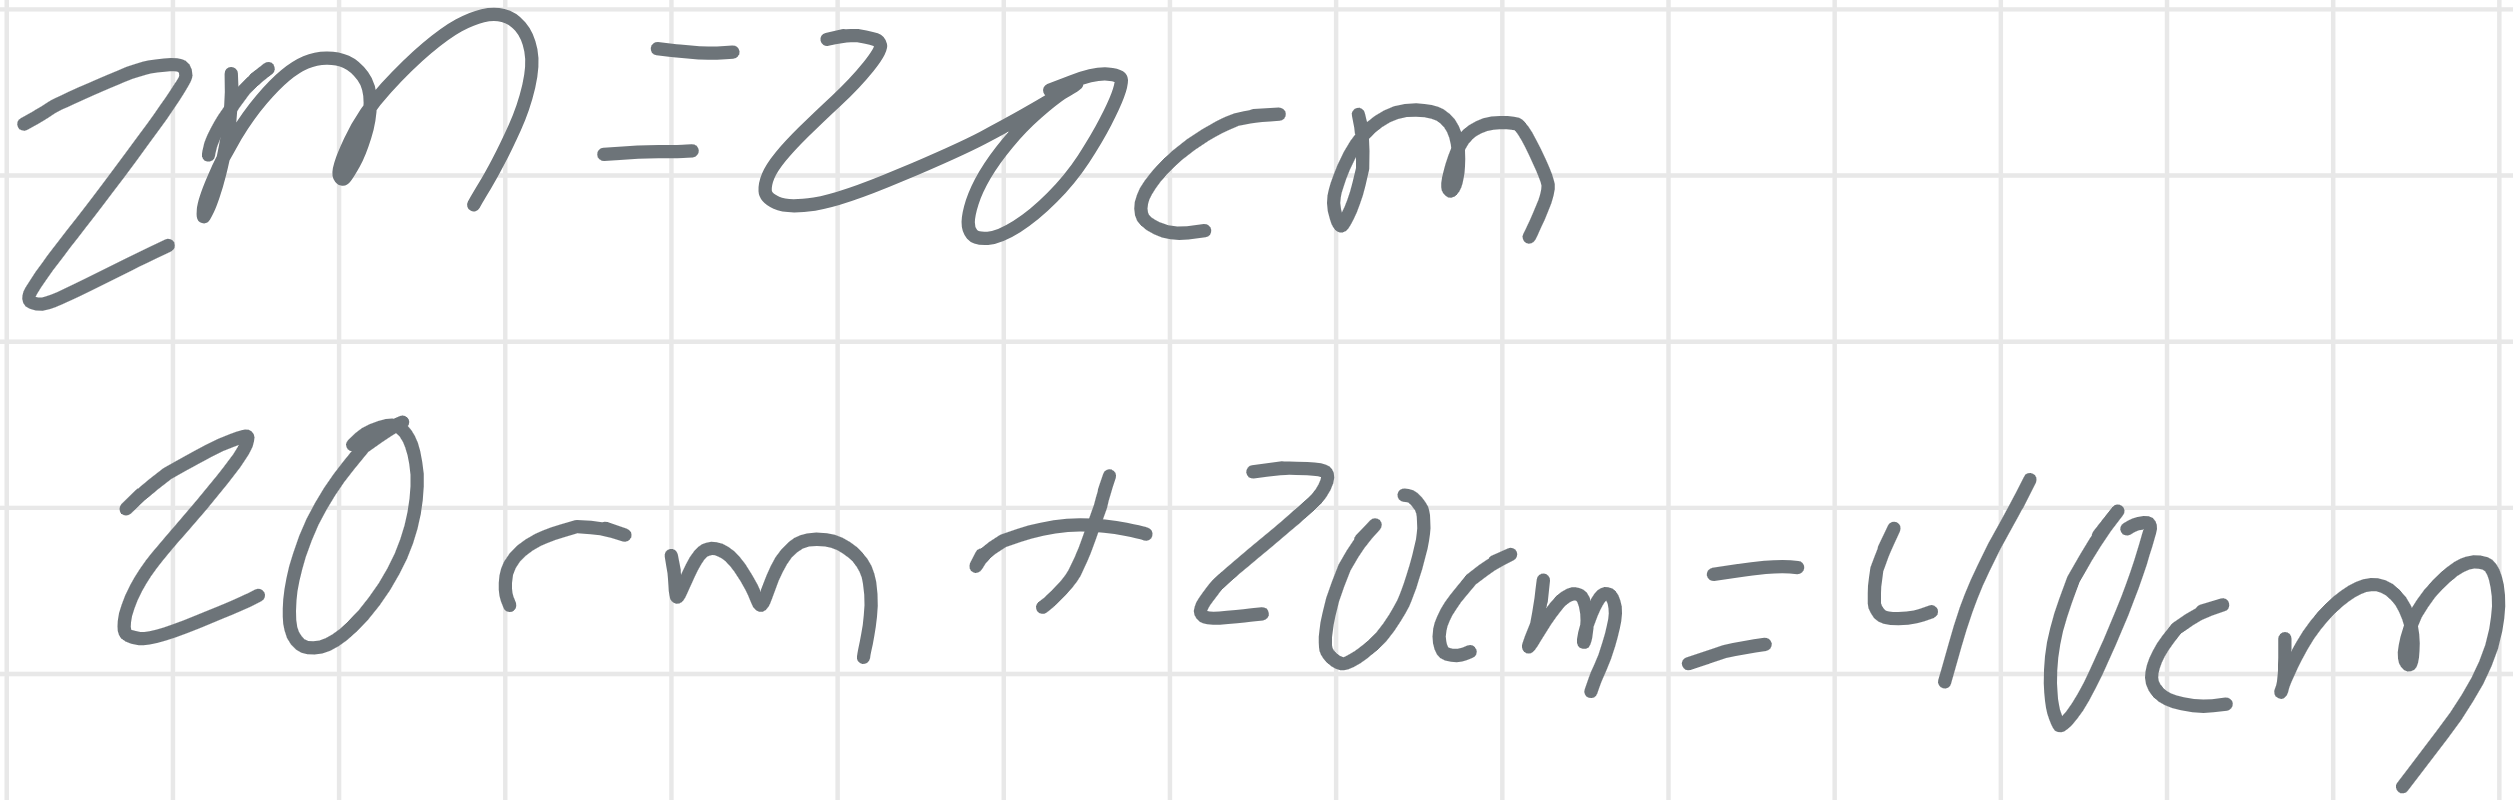 2m = 20cm
20cm + 20cm = 40cm